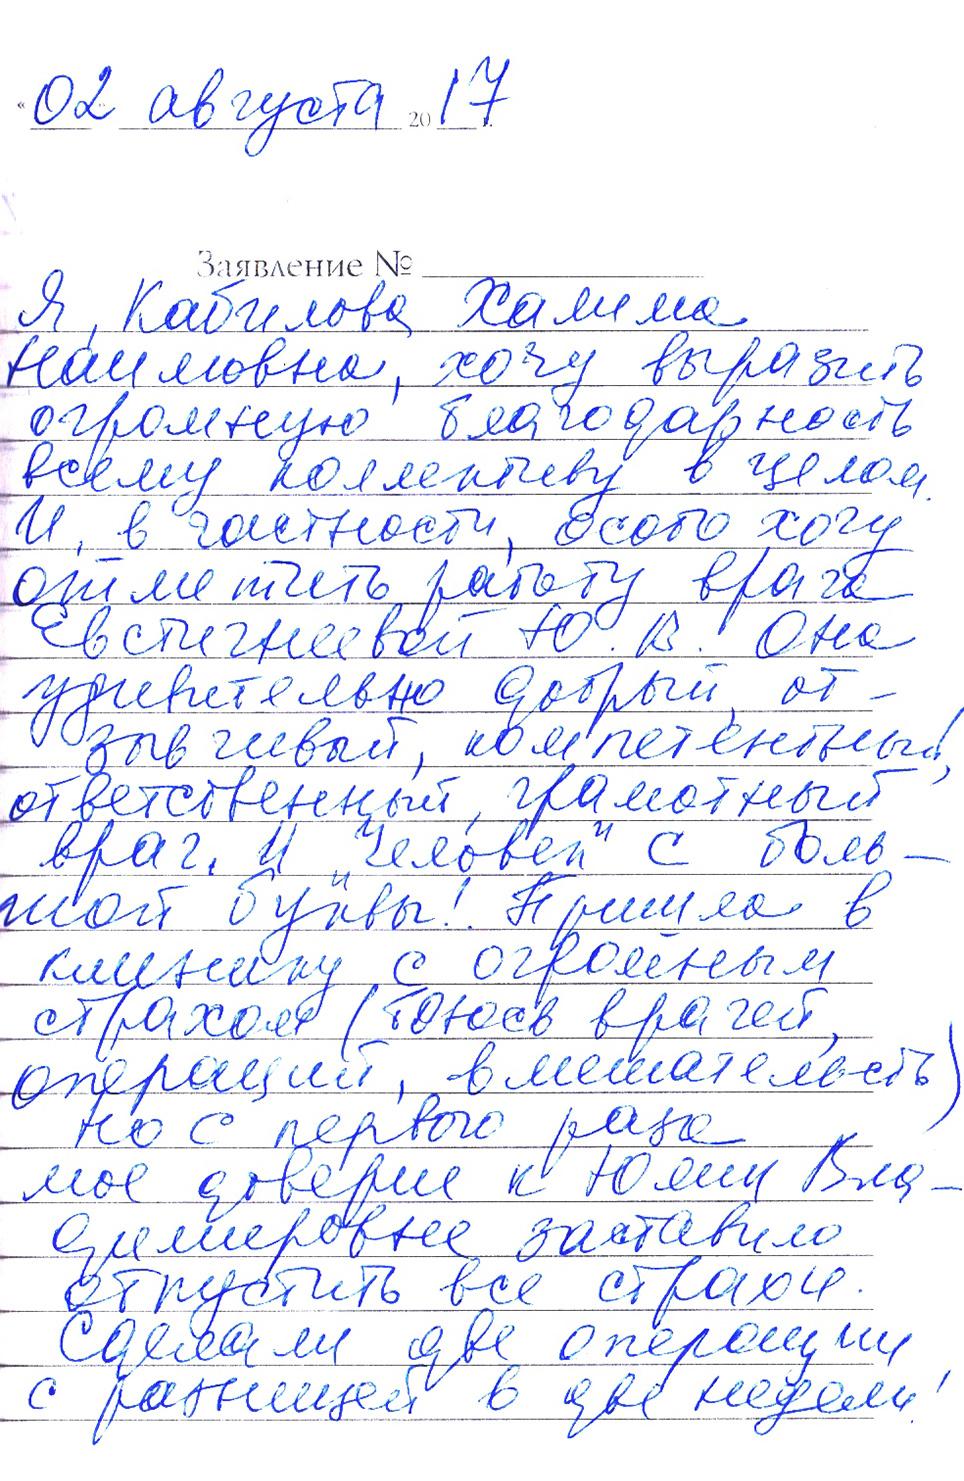 «02» августа 2017 г.
Заявление №
Я, Кабилова Халима
Наимовна, хочу выразить
огромную благодарность
всему коллективу в целом.
И, в частности, особо хочу
отметить работу врача
Евстигнеевой Ю. В. Она
удивительно добрый, от-
зывчивый, компетентный,
ответственный, грамотный
врач. И "Человек" с боль-
шой буквы! Пришла в
клинику с огромным
страхом (боюсь врачей,
операций, вмешательств)
но с первого раза
мое доверие к Юлии Вла-
димировне заставило
отпустить все страхи.
Сделали две операции
с разницей в две недели!